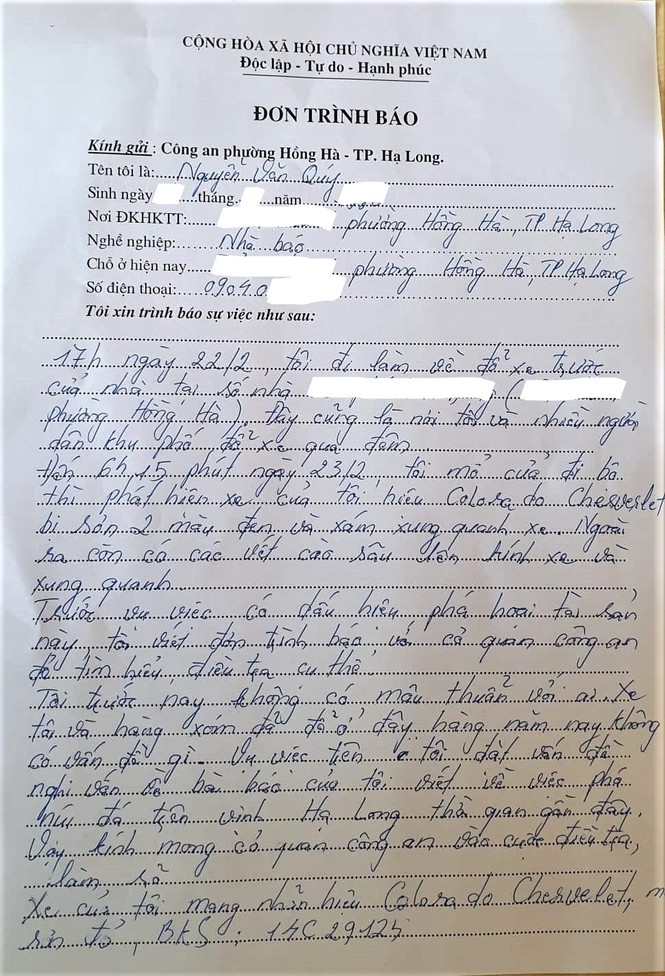 CỘNG HÒA XÃ HỘI CHỦ NGHĨA VIỆT NAM
Độc lập - Tự do - Hạnh phúc
ĐƠN TRÌNH BÁO
Kính gửi : Công an phường Hồng Hà - TP. Hạ Long.
Tên tôi là: Nguyễn Văn Qúy
Sinh ngày tháng năm
Nơi ĐKHKTT: phường Hồng Hà, TP Hạ Long
Nghề nghiệp: Nhà báo
Chỗ ở hiện nay phường Hồng Hà, TP Hạ Long
Số điện thoại: 0904.0
Tôi xin trình báo sự việc như sau:
17h ngày 22/2, tôi đi làm về đỗ xe trước
cửa nhà tại số nhà (
phường Hồng Hà). Đây cũng là nơi tôi và nhiều người
dân khu phố đỗ xe qua đêm
Đến 6h 15 phút ngày 23/2, tôi mở cửa đi bộ
thì phát hiện xe của tôi hiệu Colorado Chesverlet
bị sơn 2 màu đen và xám xung quanh xe. Ngoài
ra còn có các vết cào sâu lên kính xe và
xung quanh
Trước vụ việc có dấu hiệu phá hoại tài sản
này, tôi viết đơn trình báo với cơ quan công an
để tìm hiểu, điều tra cụ thể.
Tôi trước nay không có mâu thuẫn với ai. Xe
tôi và hàng xóm đã đỗ ở đây hàng năm nay không
có vấn đề gì. Vụ việc trên tôi đặt vấn đề
nghi vấn về bài báo của tôi viết về việc phá
núi đá trên vịnh Hạ Long thời gian gần đây.
Vậy kính mong cơ quan công an vào cuộc điều tra,
làm rõ
Xe của tôi mang nhãn hiệu Colorado Chesverlet,
sơn đỏ, BKS: 14C 29124